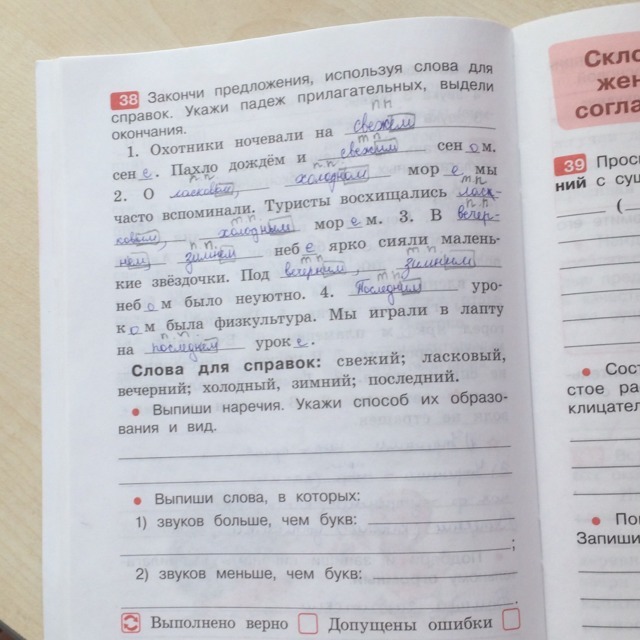 38 Закончи предложения, используя слова для
справок. Укажи падеж прилагательных, выдели
окончания.
п п
1. Охотники ночевали на свежем
сене. Пахло дождём и свежим сеном.
2. О ласковом, холодном море мы
часто вспоминали. Туристы восхищались ласк-
овым, холодным морем. 3. В вечер-
нем, зимнем небе ярко сияли малень-
кие звёздочки. Под вечерним, зимним
небом было неуютно. 4. Последним уро-
ком была физкультура. Мы играли в лапту
на последнем уроке.
Слова для справок: свежий; ласковый,
вечерний; холодный, зимний; последний.
• Выпиши наречия. Укажи способ их образо-
вания и вид.
• Выпиши слова, в которых:
1) звуков больше, чем букв:
;
2) звуков меньше, чем букв:
.
Выполнено верно Допущены ошибки
Скло
жен
согла
39 Прос
ний с су
(
• Сост
стое ра
клицател
• По
Запиши